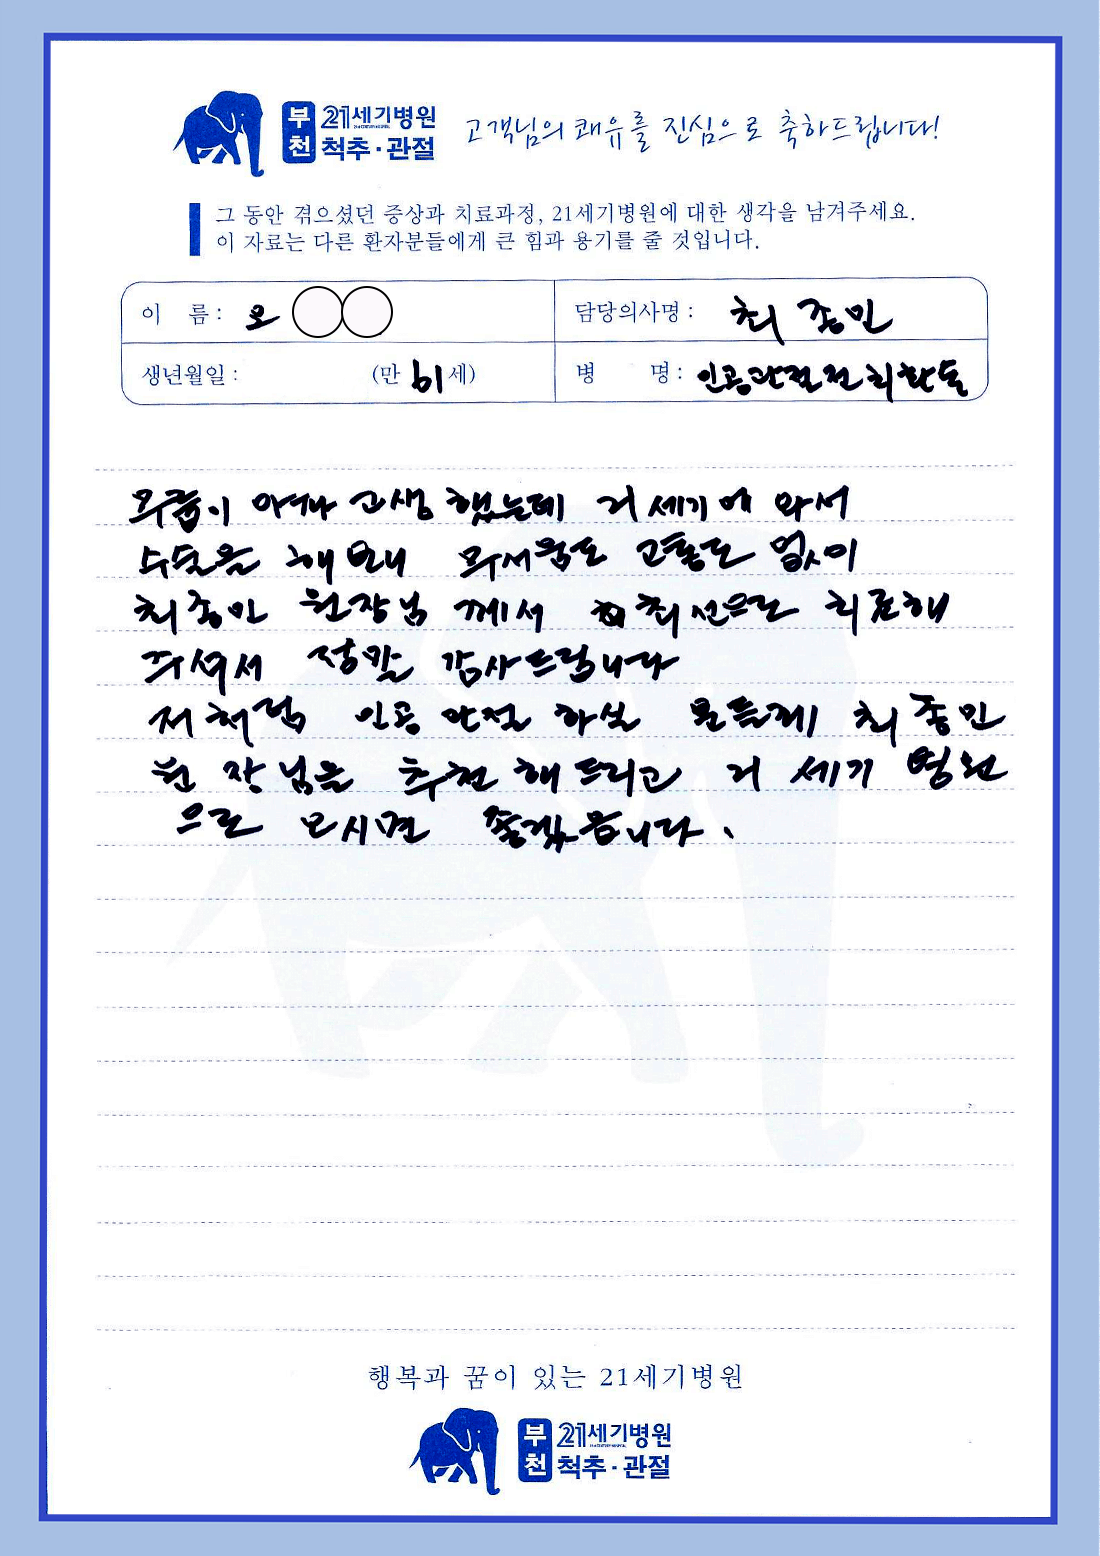 부천 21세기병원 척추·관절
고객님의 쾌유를 진심으로 축하드립니다!
그 동안 겪으셨던 증상과 치료과정, 21세기병원에 대한 생각을 남겨주세요.
이 자료는 다른 환자분들에게 큰 힘과 용기를 줄 것입니다.
이 름 : 오
담당의사명 : 최종민
생년월일 : (만 61 세)
병 명 : 인공관절전치환술
무릎이 아퍼 고생 했는데 21세기에 와서
수술을 해보니 무서움도 고통도 없이
최종민 원장님 께서 최선으로 치료해
주셔서 정말 감사드립니다
저 처럼 인공 관절 하실 분들께 최종민
원장님을 추천 해드리고 21 세기 병원
으로 오시면 좋겠습니다.
행복과 꿈이 있는 21세기병원
부천 21세기병원 척추·관절